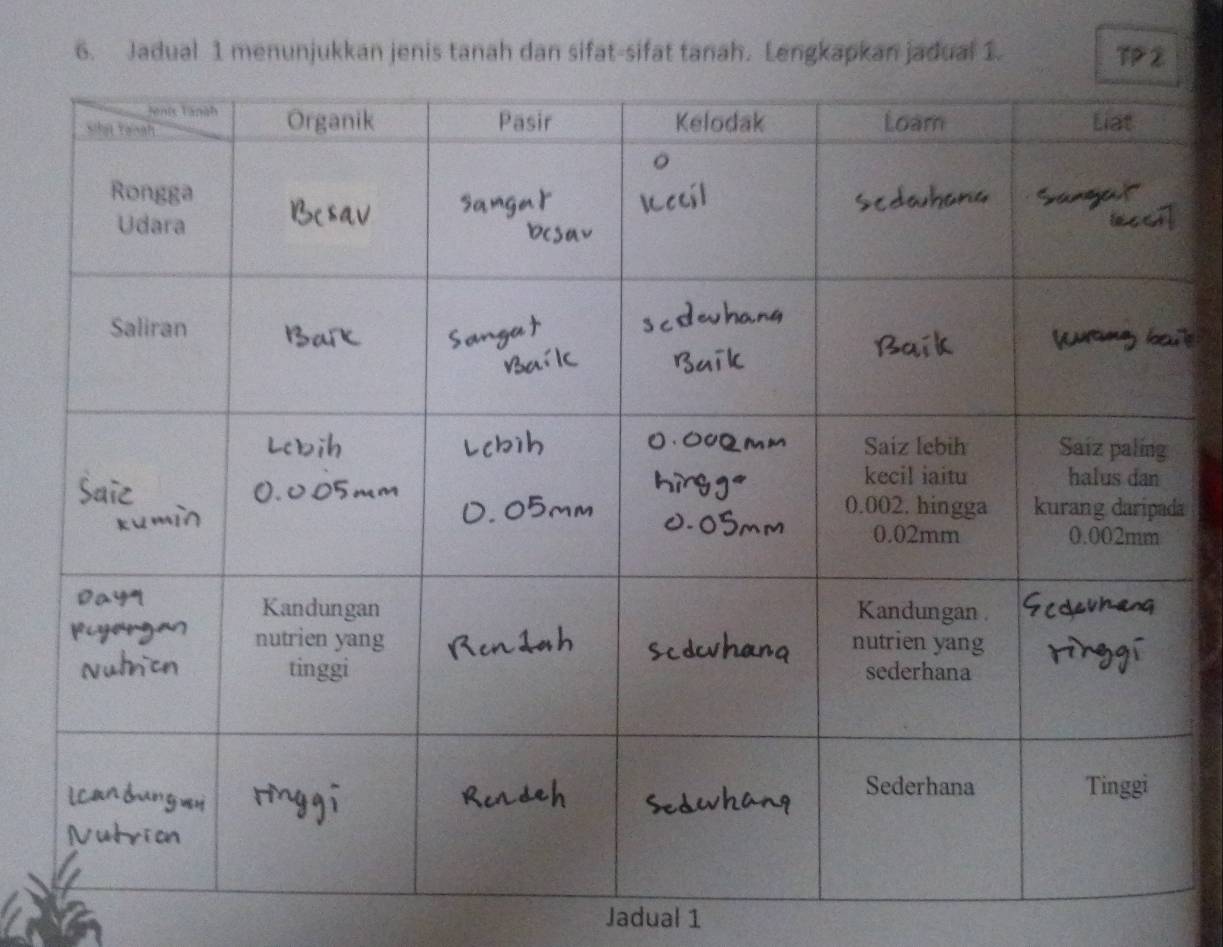 6. Jadual 1 menunjukkan jenis tanah dan sifat-sifat tanah. Lengkapkan jadual 1.
TP 2
Jenis Tanah
Sifat Tanah
Organik
Pasir
Kelodak
Loam
Liat
Rongga
Udara
Besar
sangat
besar
kecil
sederhana
sangat
kecil
Saliran
Baik
sangat
Baik
sederhana
Baik
Baik
kurang baik
Saiz
kumin
Lebih
0.005mm
Lebih
0.05mm
0.002mm
hingga
0.05mm
Saiz lebih
kecil iaitu
0.002. hingga
0.02mm
Saiz paling
halus dan
kurang daripada
0.002mm
Daya
Pegangan
Nutrien
Kandungan
nutrien yang
tinggi
Rendah
sederhana
Kandungan
nutrien yang
sederhana
Sederhana
tinggi
kandungan
Nutrien
tinggi
Rendah
sederhana
Sederhana
Tinggi
Jadual 1